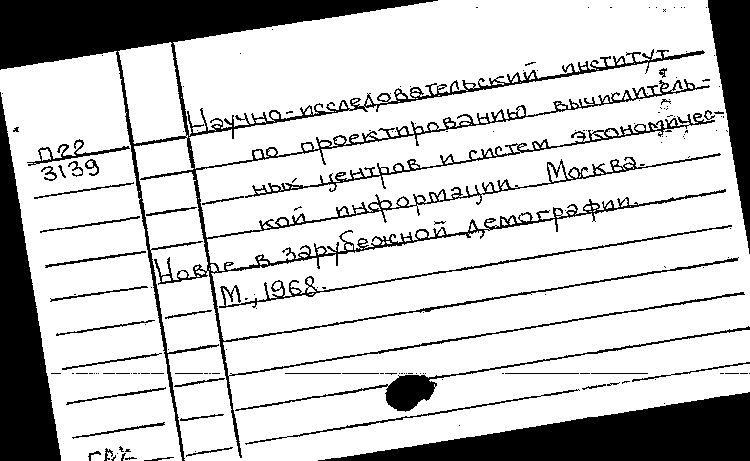 Научно-исследовательский институт
по проектированию вычислитель-
ных центров и систем экономичес-
кой информации. Москва.
Новое в зарубежной демографии.
М., 1968.
П22
3139